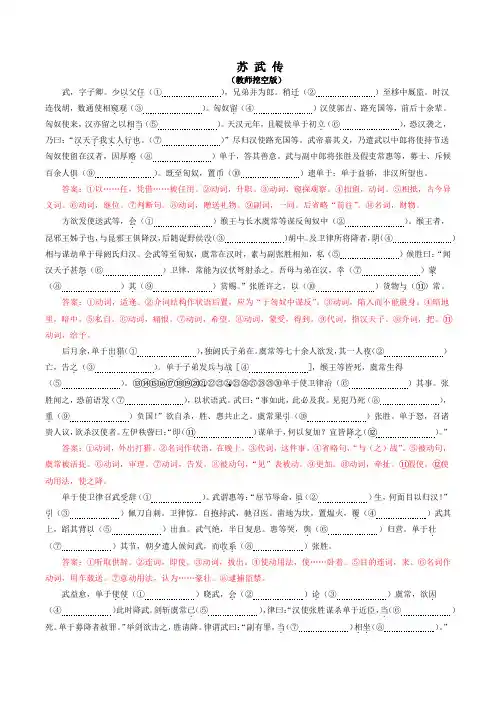 苏 武 传
（教师挖空版）
武，字子卿。少以父任（①        ），兄弟并为郎。稍迁（②        ）至栘中厩监。时汉
连伐胡，数通使相窥观（③        ）。匈奴留（④        ）汉使郭吉、路充国等，前后十余辈。
匈奴使来，汉亦留之以相当（⑤        ）。天汉元年，且鞮侯单于初立（⑥        ），恐汉袭之，
乃曰：“汉天子我丈人行也。（⑦        ）”尽归汉使路充国等。武帝嘉其义，乃遣武以中郎将使持节送
匈奴使留在汉者，因厚赂（⑧        ）单于，答其善意。武与副中郎将张胜及假吏常惠等，募士、斥候
百余人俱（⑨        ）。既至匈奴，置币（⑩        ）遗单于；单于益骄，非汉所望也。
答案：①以……任，凭借……被任用。②动词，升职。③动词，窥探观察。④扣留，动词。⑤相抵，古今异
义词。⑥动词，继位。⑦判断句。⑧动词，赠送礼物。⑨副词，一同。后省略“前往”。⑩名词，财物。
方欲发使送武等，会（①        ）缑王与长水虞常等谋反匈奴中（②        ）。缑王者，
昆邪王姊子也，与昆邪王俱降汉，后随浞野侯没（③        ）胡中。及卫律所将降者，阴（④        ）
相与谋劫单于母阏氏归汉。会武等至匈奴，虞常在汉时，素与副张胜相知，私（⑤        ）候胜曰：“闻
汉天子甚怨（⑥        ）卫律，常能为汉伏弩射杀之。吾母与弟在汉，幸（⑦        ）蒙
（⑧        ）其（⑨        ）赏赐。”张胜许之，以（⑩        ）货物与（⑪        ）常。
答案：①动词，适逢。②介词结构作状语后置，应为“于匈奴中谋反”。③动词，陷入而不能脱身。④暗地
里，暗中。⑤私自。⑥动词，痛恨。⑦动词，希望。⑧动词，蒙受，得到。⑨代词，指汉天子。⑩介词，把。⑪
动词，给予。
后月余，单于出猎（①        ），独阏氏子弟在。虞常等七十余人欲发，其一人夜（②        ）
亡，告之（③        ）。单于子弟发兵与战［④        ］，缑王等皆死，虞常生得
（⑤        ）。⑬⑭⑮⑯⑰⑱⑲⑳㉑㉒㉓㉔㉕㉖㉗㉘㉙㉚单于使卫律治（⑥        ）其事。张
胜闻之，恐前语发（⑦        ），以状语武。武曰：“事如此，此必及我。见犯乃死（⑧        ），
重（⑨        ）负国！”欲自杀，胜、惠共止之。虞常果引（⑩        ）张胜。单于怒，召诸
贵人议，欲杀汉使者。左伊秩訾曰：“即（⑪        ）谋单于，何以复加？宜皆降之（⑫        ）。”
答案：①动词，外出打猎。②名词作状语，在晚上。③代词，这件事。④省略句，“与（之）战”。⑤被动句，
虞常被活捉。⑥动词，审理。⑦动词，告发。⑧被动句，“见”表被动。⑨更加。⑩动词，牵扯。⑪假使。⑫使
动用法，使之降。
单于使卫律召武受辞（①        ）。武谓惠等：“屈节辱命，虽（②        ）生，何面目以归汉！”
引（③        ）佩刀自刺。卫律惊，自抱持武，驰召医。凿地为坎，置煴火，覆（④        ）武其
上，蹈其背以（⑤        ）出血。武气绝，半日复息。惠等哭，舆（⑥        ）归营。单于壮
（⑦        ）其节，朝夕遣人候问武，而收系（⑧        ）张胜。
答案：①听取供辞。②连词，即使。③动词，拔出。④使动用法，使……卧着。⑤目的连词，来。⑥名词作
动词，用车载送。⑦意动用法。认为……豪壮。⑧逮捕监禁。
武益愈，单于使使（①        ）晓武，会（②        ）论（③        ）虞常，欲因
（④        ）此时降武。剑斩虞常已（⑤        ），律曰：“汉使张胜谋杀单于近臣，当（⑥        ）
死。单于募降者赦罪。”举剑欲击之，胜请降。律谓武曰：“副有罪，当（⑦        ）相坐（⑧        ）。”